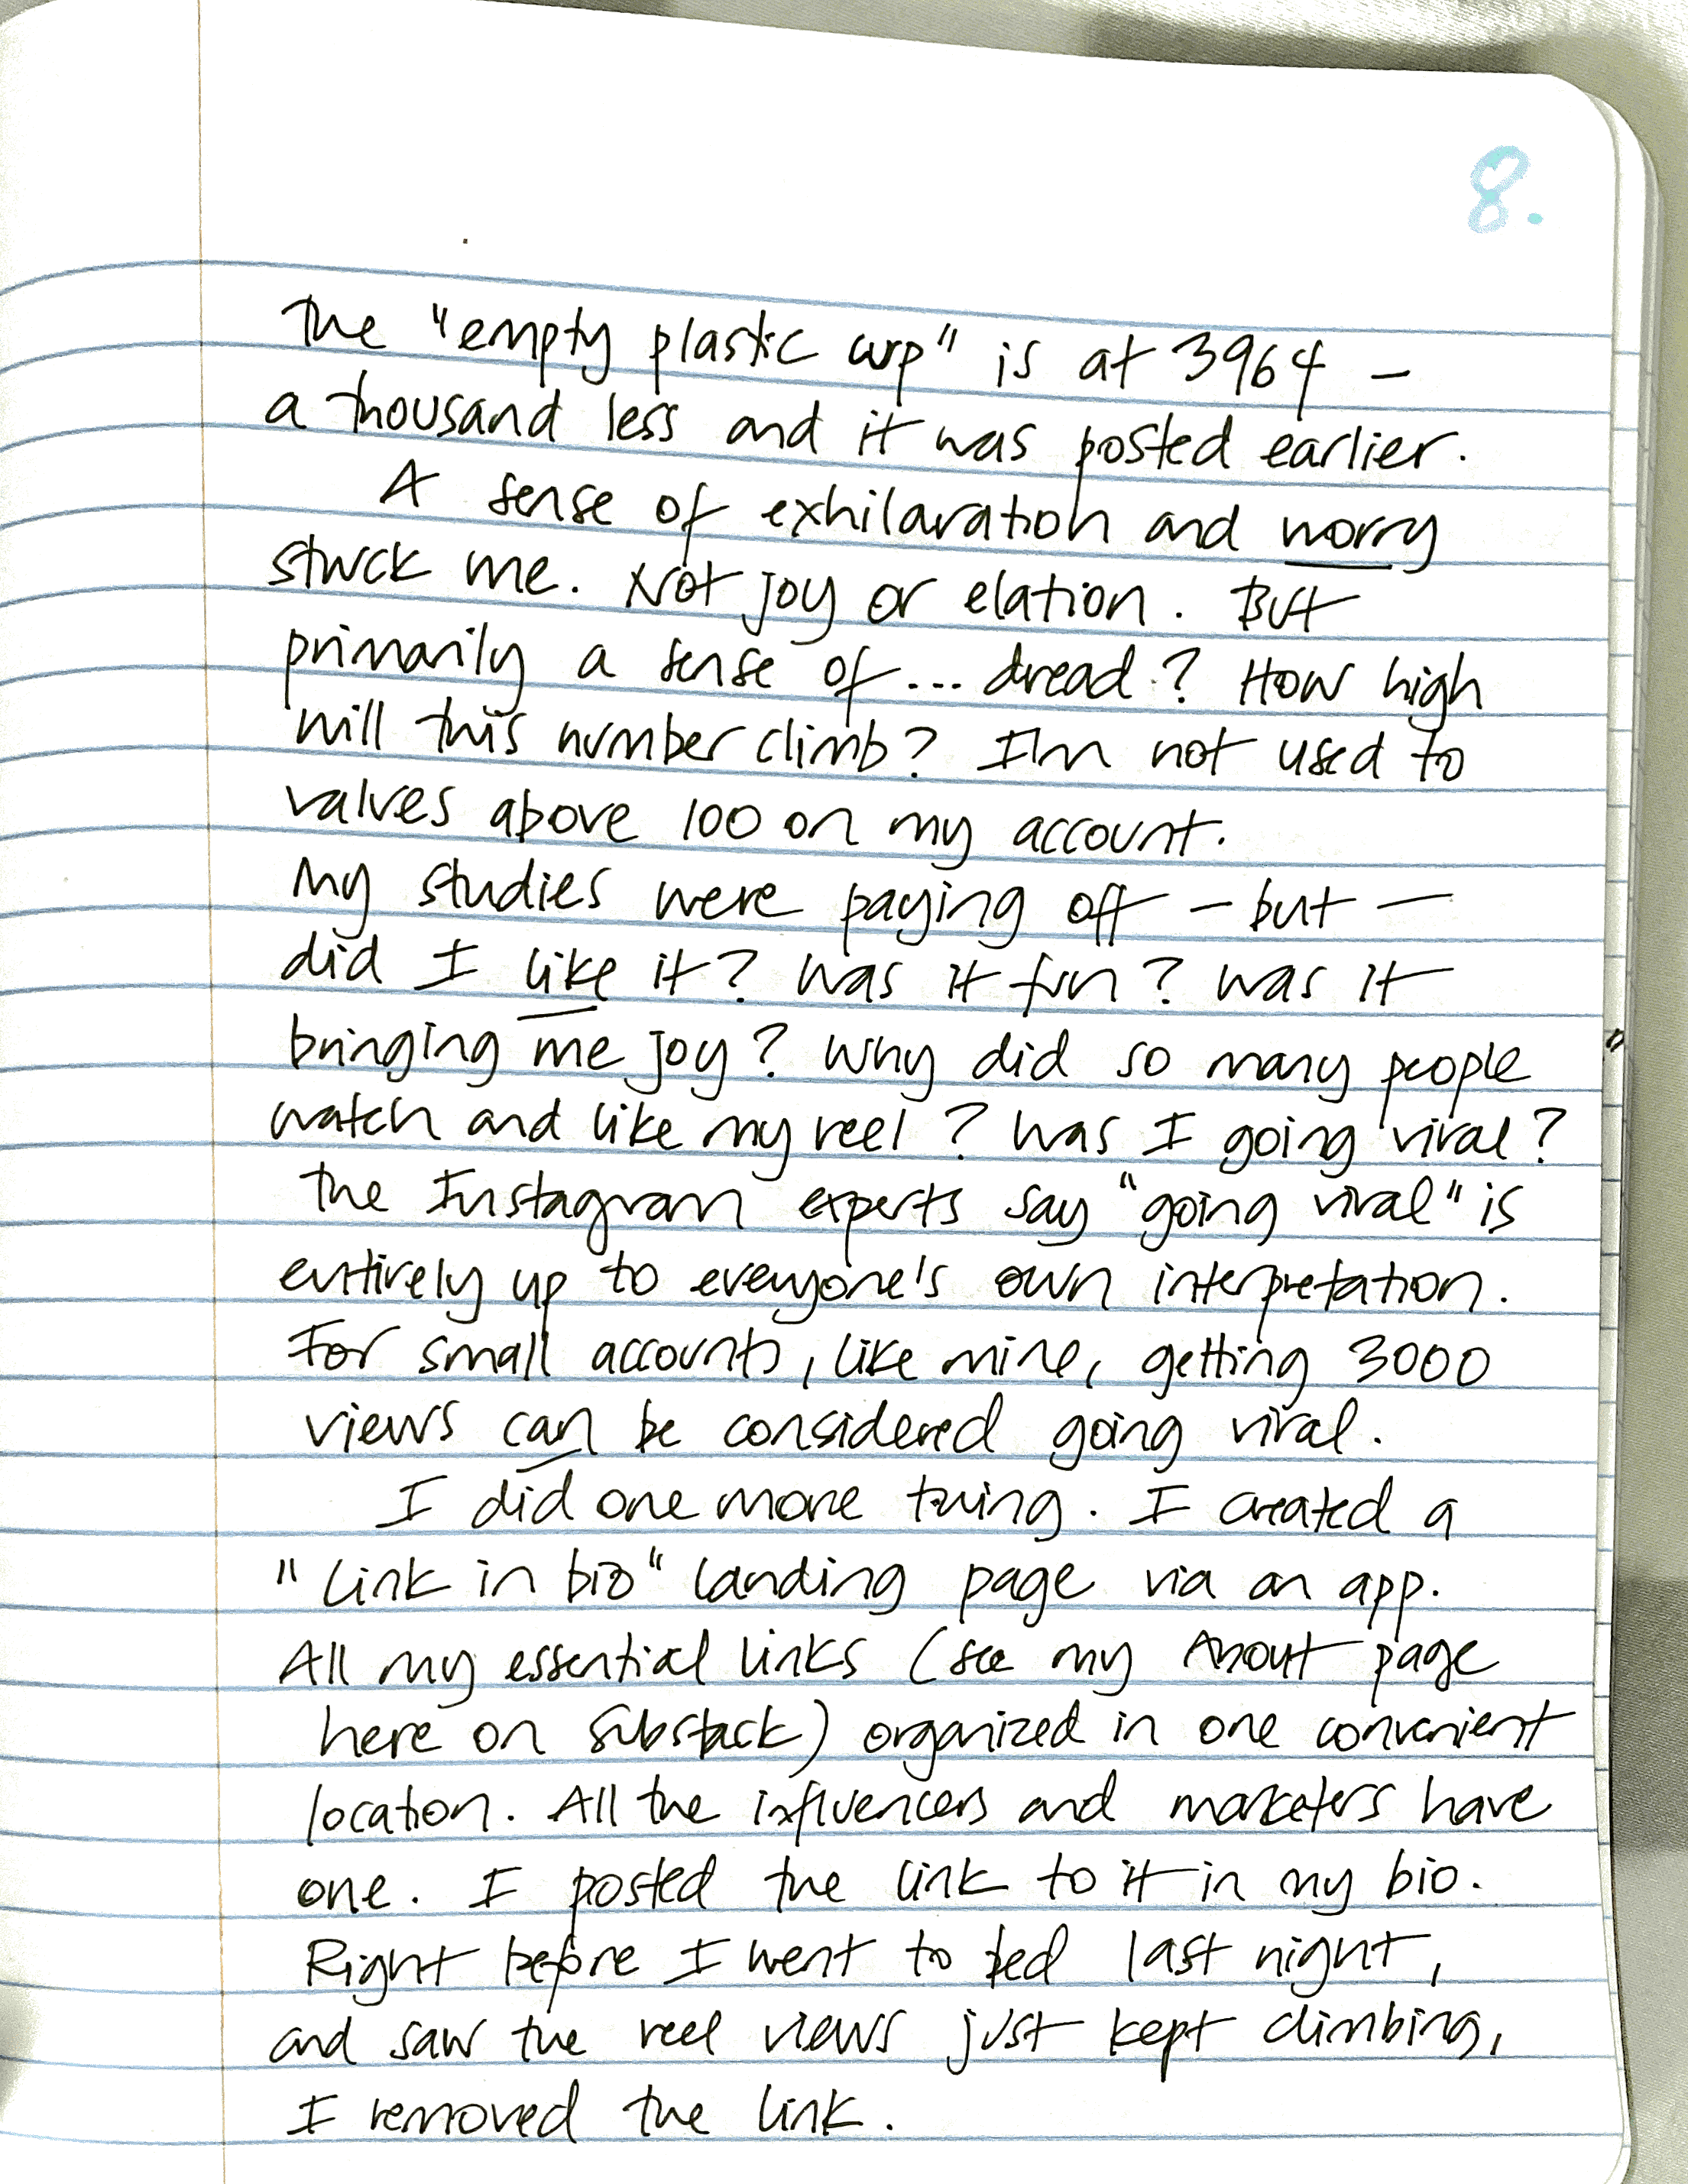 8.
The "empty plastic cup" is at 3964 –
a thousand less and it was posted earlier.
A sense of exhilaration and worry
struck me. Not joy or elation. But
primarily a sense of... dread? How high
will this number climb? I'm not used to
values above 100 on my account.
My studies were paying off – but –
did I like it? Was it fun? Was it
bringing me joy? Why did so many people
watch and like my reel? Was I going viral?
The Instagram experts say "going viral" is
entirely up to everyone's own interpretation.
For small accounts, like mine, getting 3000
views can be considered going viral.
I did one more thing. I created a
"link in bio" landing page via an app.
All my essential links (see my About page
here on Substack) organized in one convenient
location. All the influencers and marketers have
one. I posted the link to it in my bio.
Right before I went to bed last night,
and saw the reel views just kept climbing,
I removed the link.